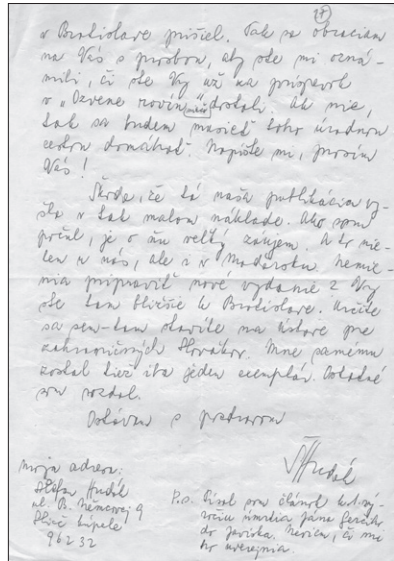 v Bratislave prišiel. Tak sa obraciam
na Vás s prosbou, aby ste mi ozná-
mili, či ste Vy už za príspevok
v „Ozvene rovín" niečo dostali. Ak nie,
tak sa budem musieť toho úradnou
cestou domáhať. Napíšte mi, prosím
Vás!
Škoda, že tá naša publikácia vy-
šla v tak malom náklade. Ako som
počul, je o ňu veľký záujem. A to nie-
len u nás, ale i v Maďarsku. Nemie-
nia pripraviť nové vydanie? Vy
ste tam bližšie k Bratislave. Určite
sa sem-tam stavíte na Ústave pre
zahraničných Slovákov. Mne samému
zostal tiež iba jeden exemplár. Ostatné
som rozdal.
Ostávam s pozdravom
Hudák
moja adresa:
Štefan Hudák
ul. B. Němcovej 9
Sliač kúpele
962 32
P.s. Písal som článok k
výročiu úmrtia Jána
do Neviem, či mi
ho uverejnia.